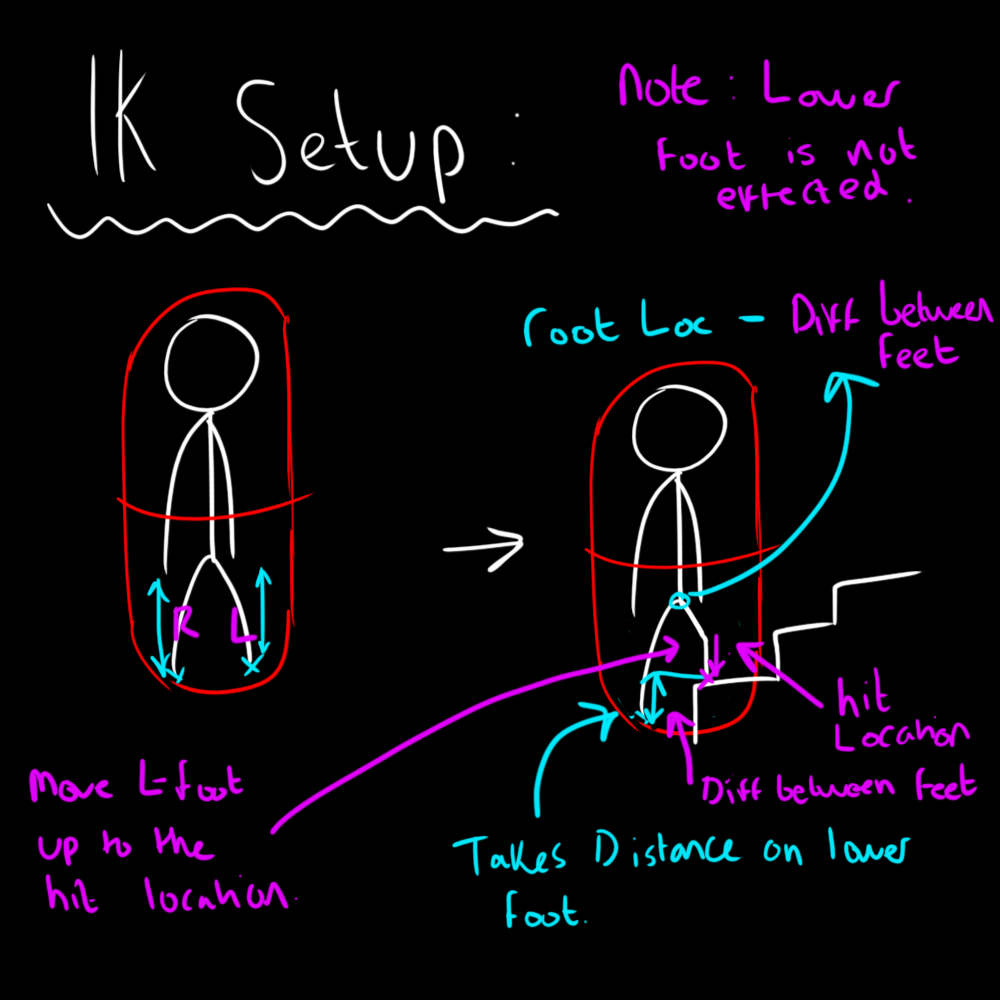 IK Setup :
Note : Lower
Foot is not
effected.
root Loc - Diff between
feet
R L
hit
Location
Diff between feet
Move L-foot
up to the
hit location.
Takes Distance on lower
foot.